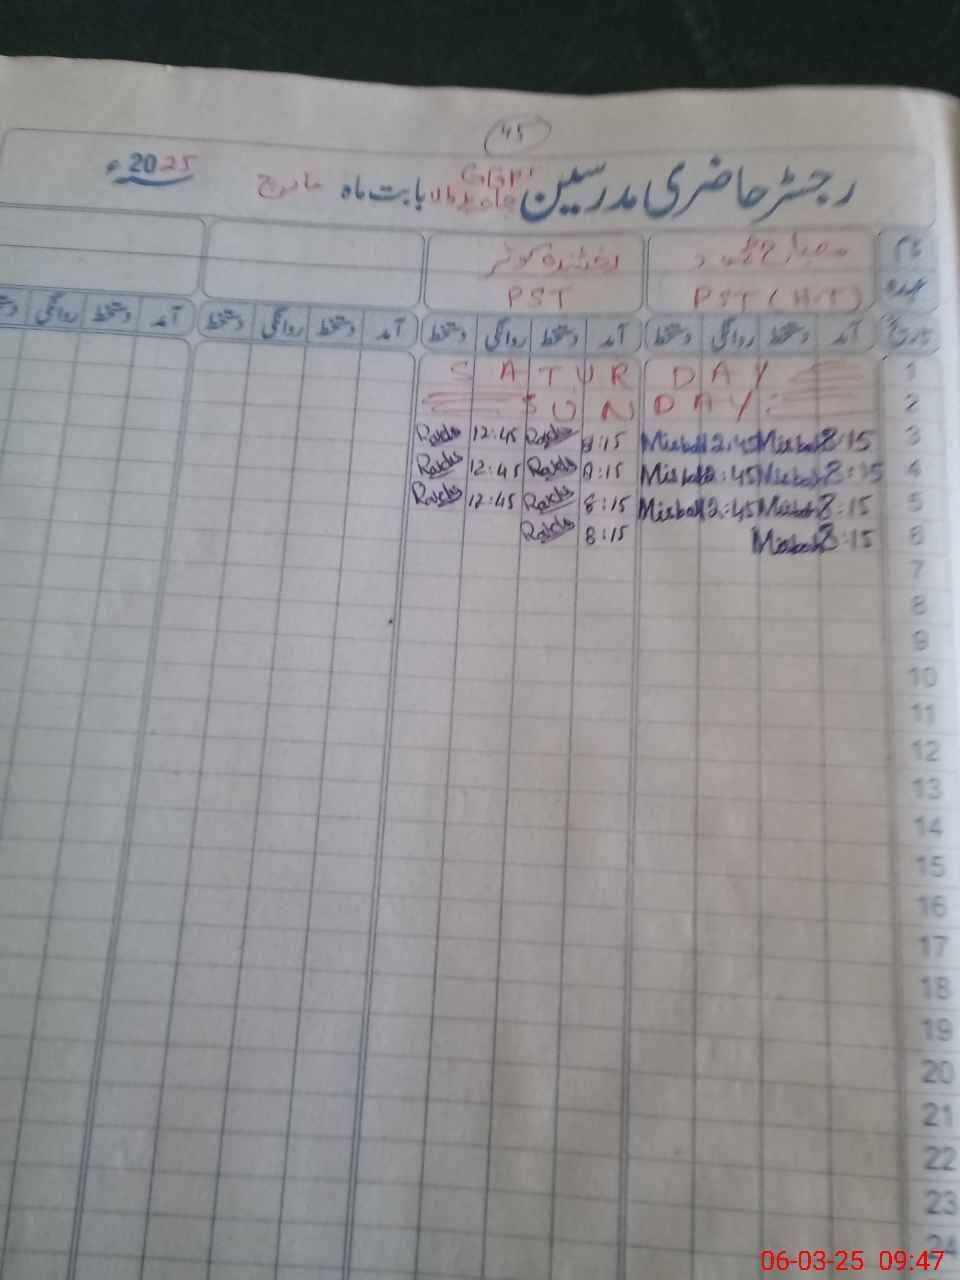 45
رجسٹر حاضری مدرسین GGPS بابت ماہ مارچ 2025ء
نام
عہدہ PST (H.T) PST
تاریخ آمد دستخط روانگی دستخط آمد دستخط روانگی دستخط آمد دستخط روانگی دستخط آمد دستخط روانگی
1 SATURDAY
2 SUNDAY
3 8:15 Misbah 12:45 Misbah 8:15 12:45
4 8:15 Misbah 12:45 Misbah 8:15 12:45
5 8:15 Misbah 12:45 Misbah 8:15 12:45
6 8:15 Misbah 8:15
7
8
9
10
11
12
13
14
15
16
17
18
19
20
21
22
23
24
06-03-25 09:47